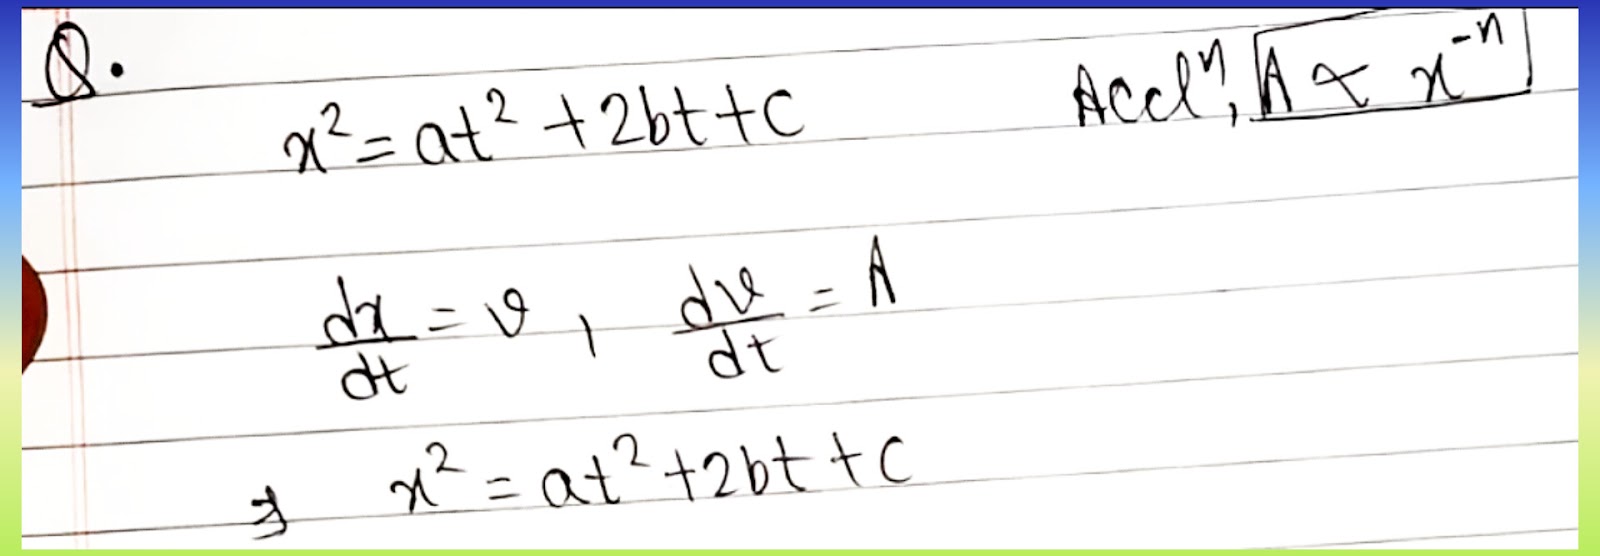 Q.
x² = at² + 2bt + c    Acclⁿ, A ∝ x⁻ⁿ
dx/dt = v, dv/dt = A
⇒ x² = at² + 2bt + c